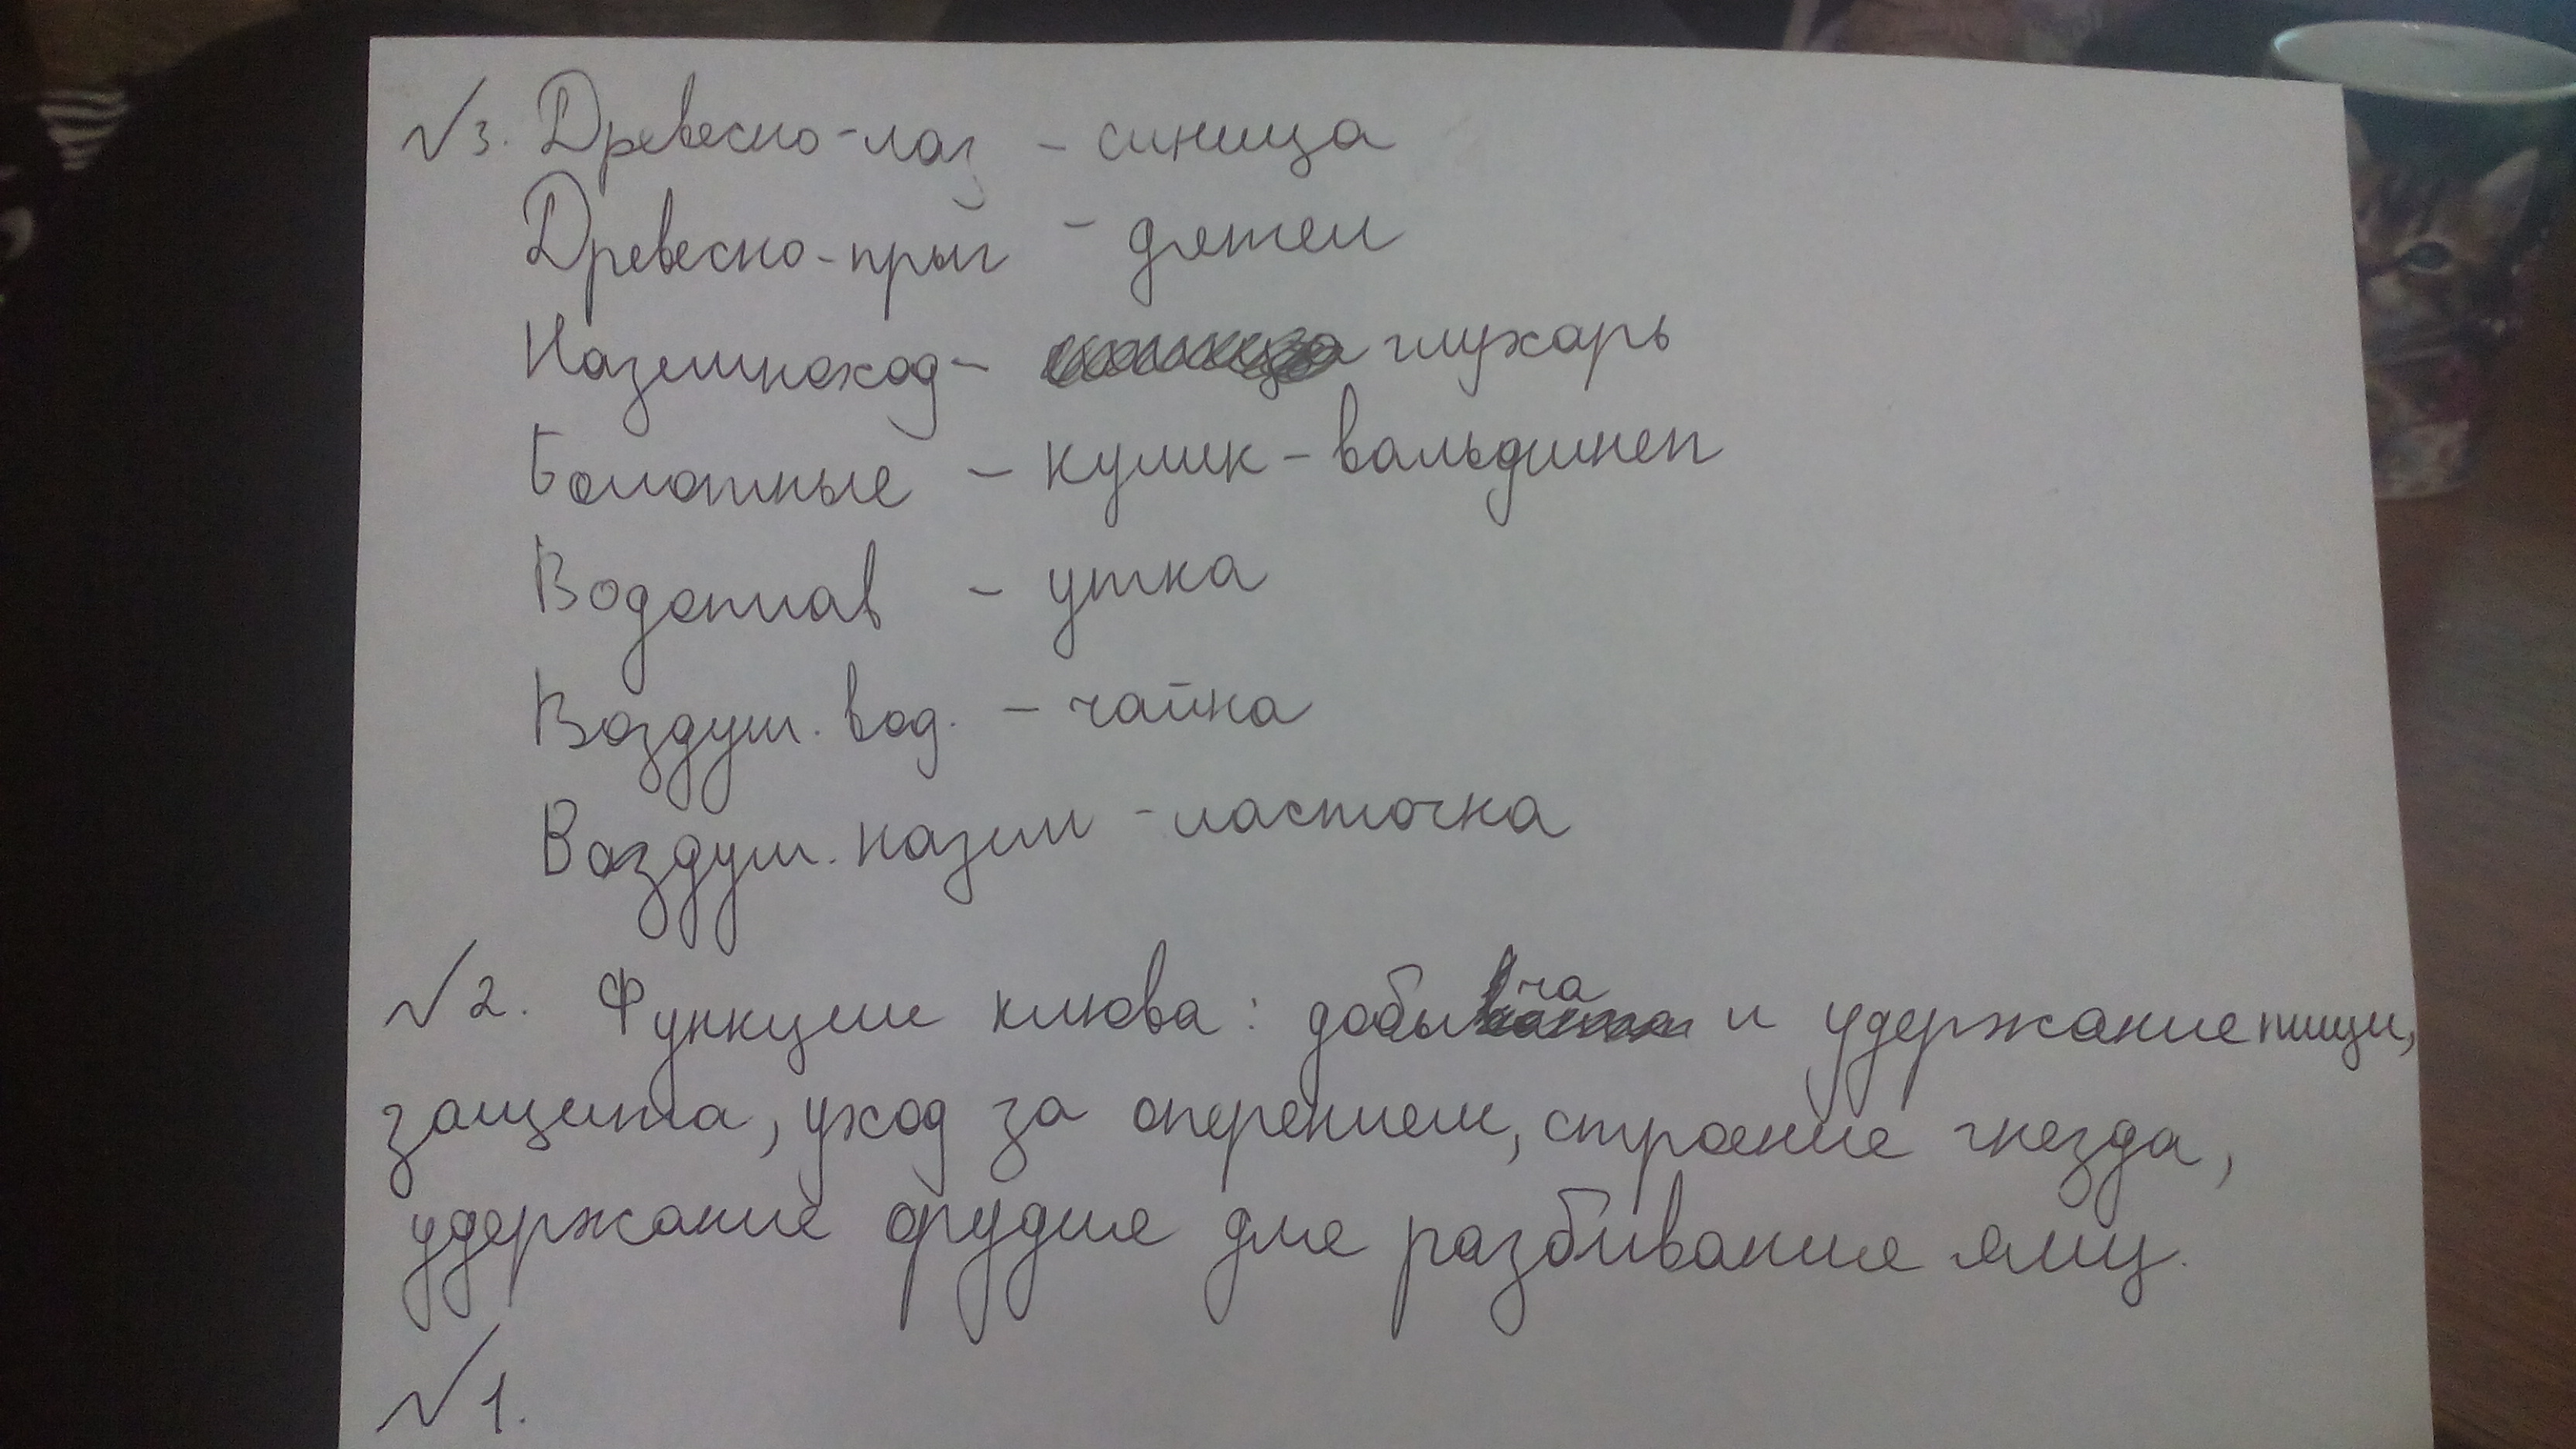 №3. Древесно-лаз - синица
Древесно-прыг - дятел
Наземноход - глухарь
Болотные - кулик - вальдшнеп
Водоплав - утка
Воздуш. вод. - чайка
Воздуш. назем - ласточка
№2. Функции клюва: добыча и удержание пищи,
защита, уход за оперением, строение гнезда,
удержание орудия для разбивания яиц.
№1.